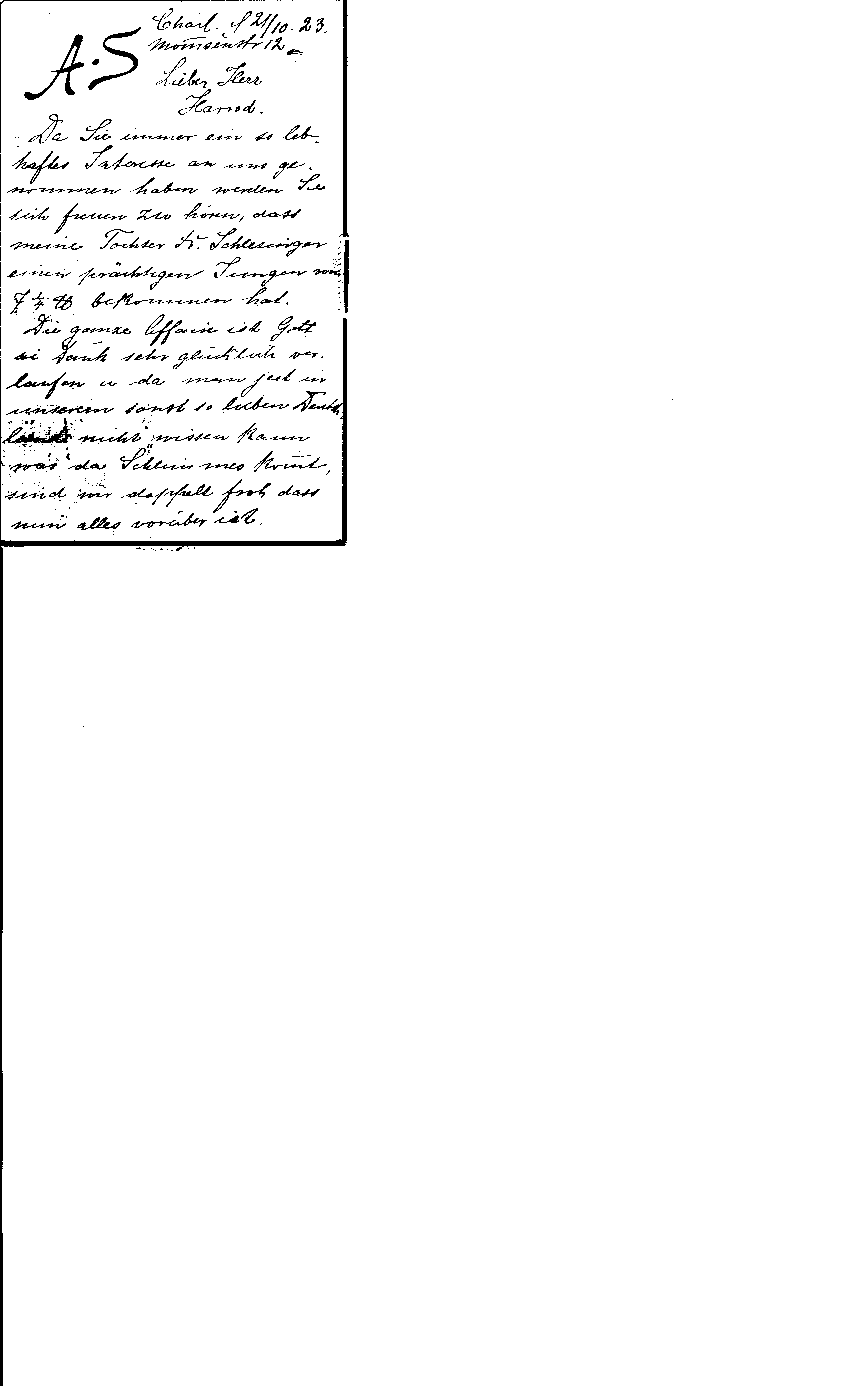 Charl. d 21/10. 23.
Mom̅senstr 12
A.S
Lieber Herr
Harrod.
Da Sie immer ein so leb-
haftes Interesse an uns ge-
nommen haben werden Sie
sich freuen zu hören, dass
meine Tochter Fr. Schlesinger
einen prächtigen Jungen von
7 1/4 ℔ bekommen hat.
Die ganze Affaire ist Gott
sei Dank sehr glücklich ver-
laufen u da man jetzt in
unserem sonst so lieben Deutsch-
lande nicht wissen kann
was da Schlimmes kom̅t,
sind wir doppelt froh dass
nun alles vorüber ist.